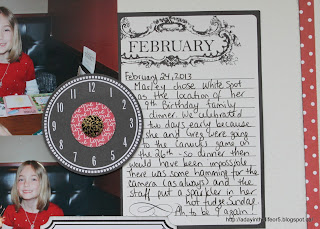 FEBRUARY
February 24, 2013
Marley chose White Spot
as the location of her
9th Birthday family
dinner. We celebrated
two days early because
she and Greg were going
to the Canucks game on
the 26th - so dinner then
would have been impossible.
There was some hamming for the
camera (as always) and the
staff put a sparkler in her
hot fudge Sunday.
Ah, to be 9 again
http://adayinthelifeof5.blogspot.ca